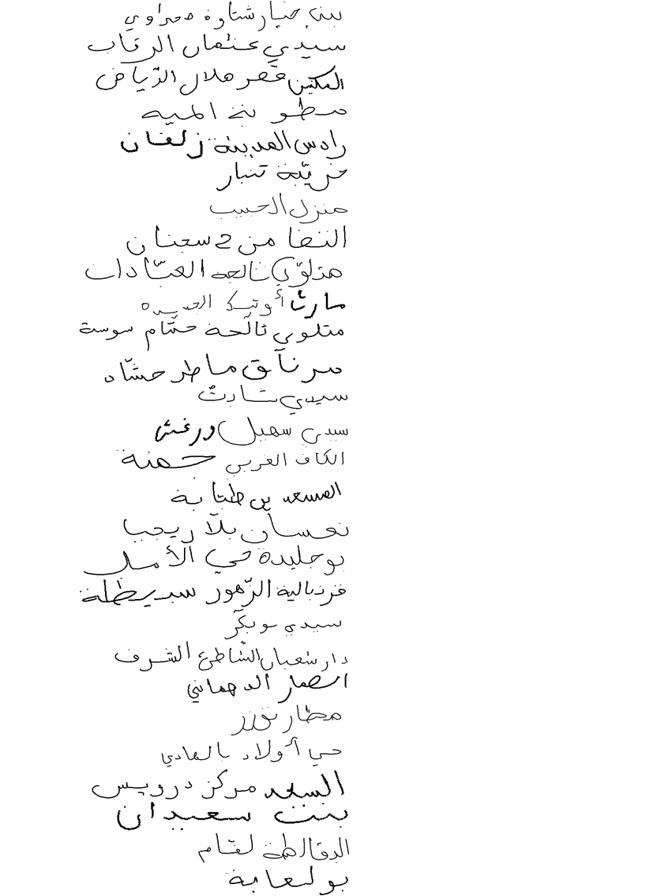 بني خيار شتاوة صحراوي
سيدي عثمان الرقاب
المكنين قصر هلال الرياض
الميه
رادس المدينة زلفان
خريبة تنبار
منزل الحبيب
من 2 سعنان
هذلول العبادات
مارث أوتيك الجديدة
متلوي ثالجة حمّام سوسة
مرناق ماطر حشّاد
سيدي
سيدي سهيل ورغش
الكاف الغربي حمنة
المسعد بن طبابة
نعسان بلاريجيا
بوجليدة حي الأمل
قرنبالية الزّهور سبيطلة
سيدي بوبكر
دار شعبان الشاطئ الشرف
الدهماني
مطار توزر
حي أولاد بالهادي
السعد مركز درويس
بنت سعيدان
الدقالطة لقّام
بولعابة